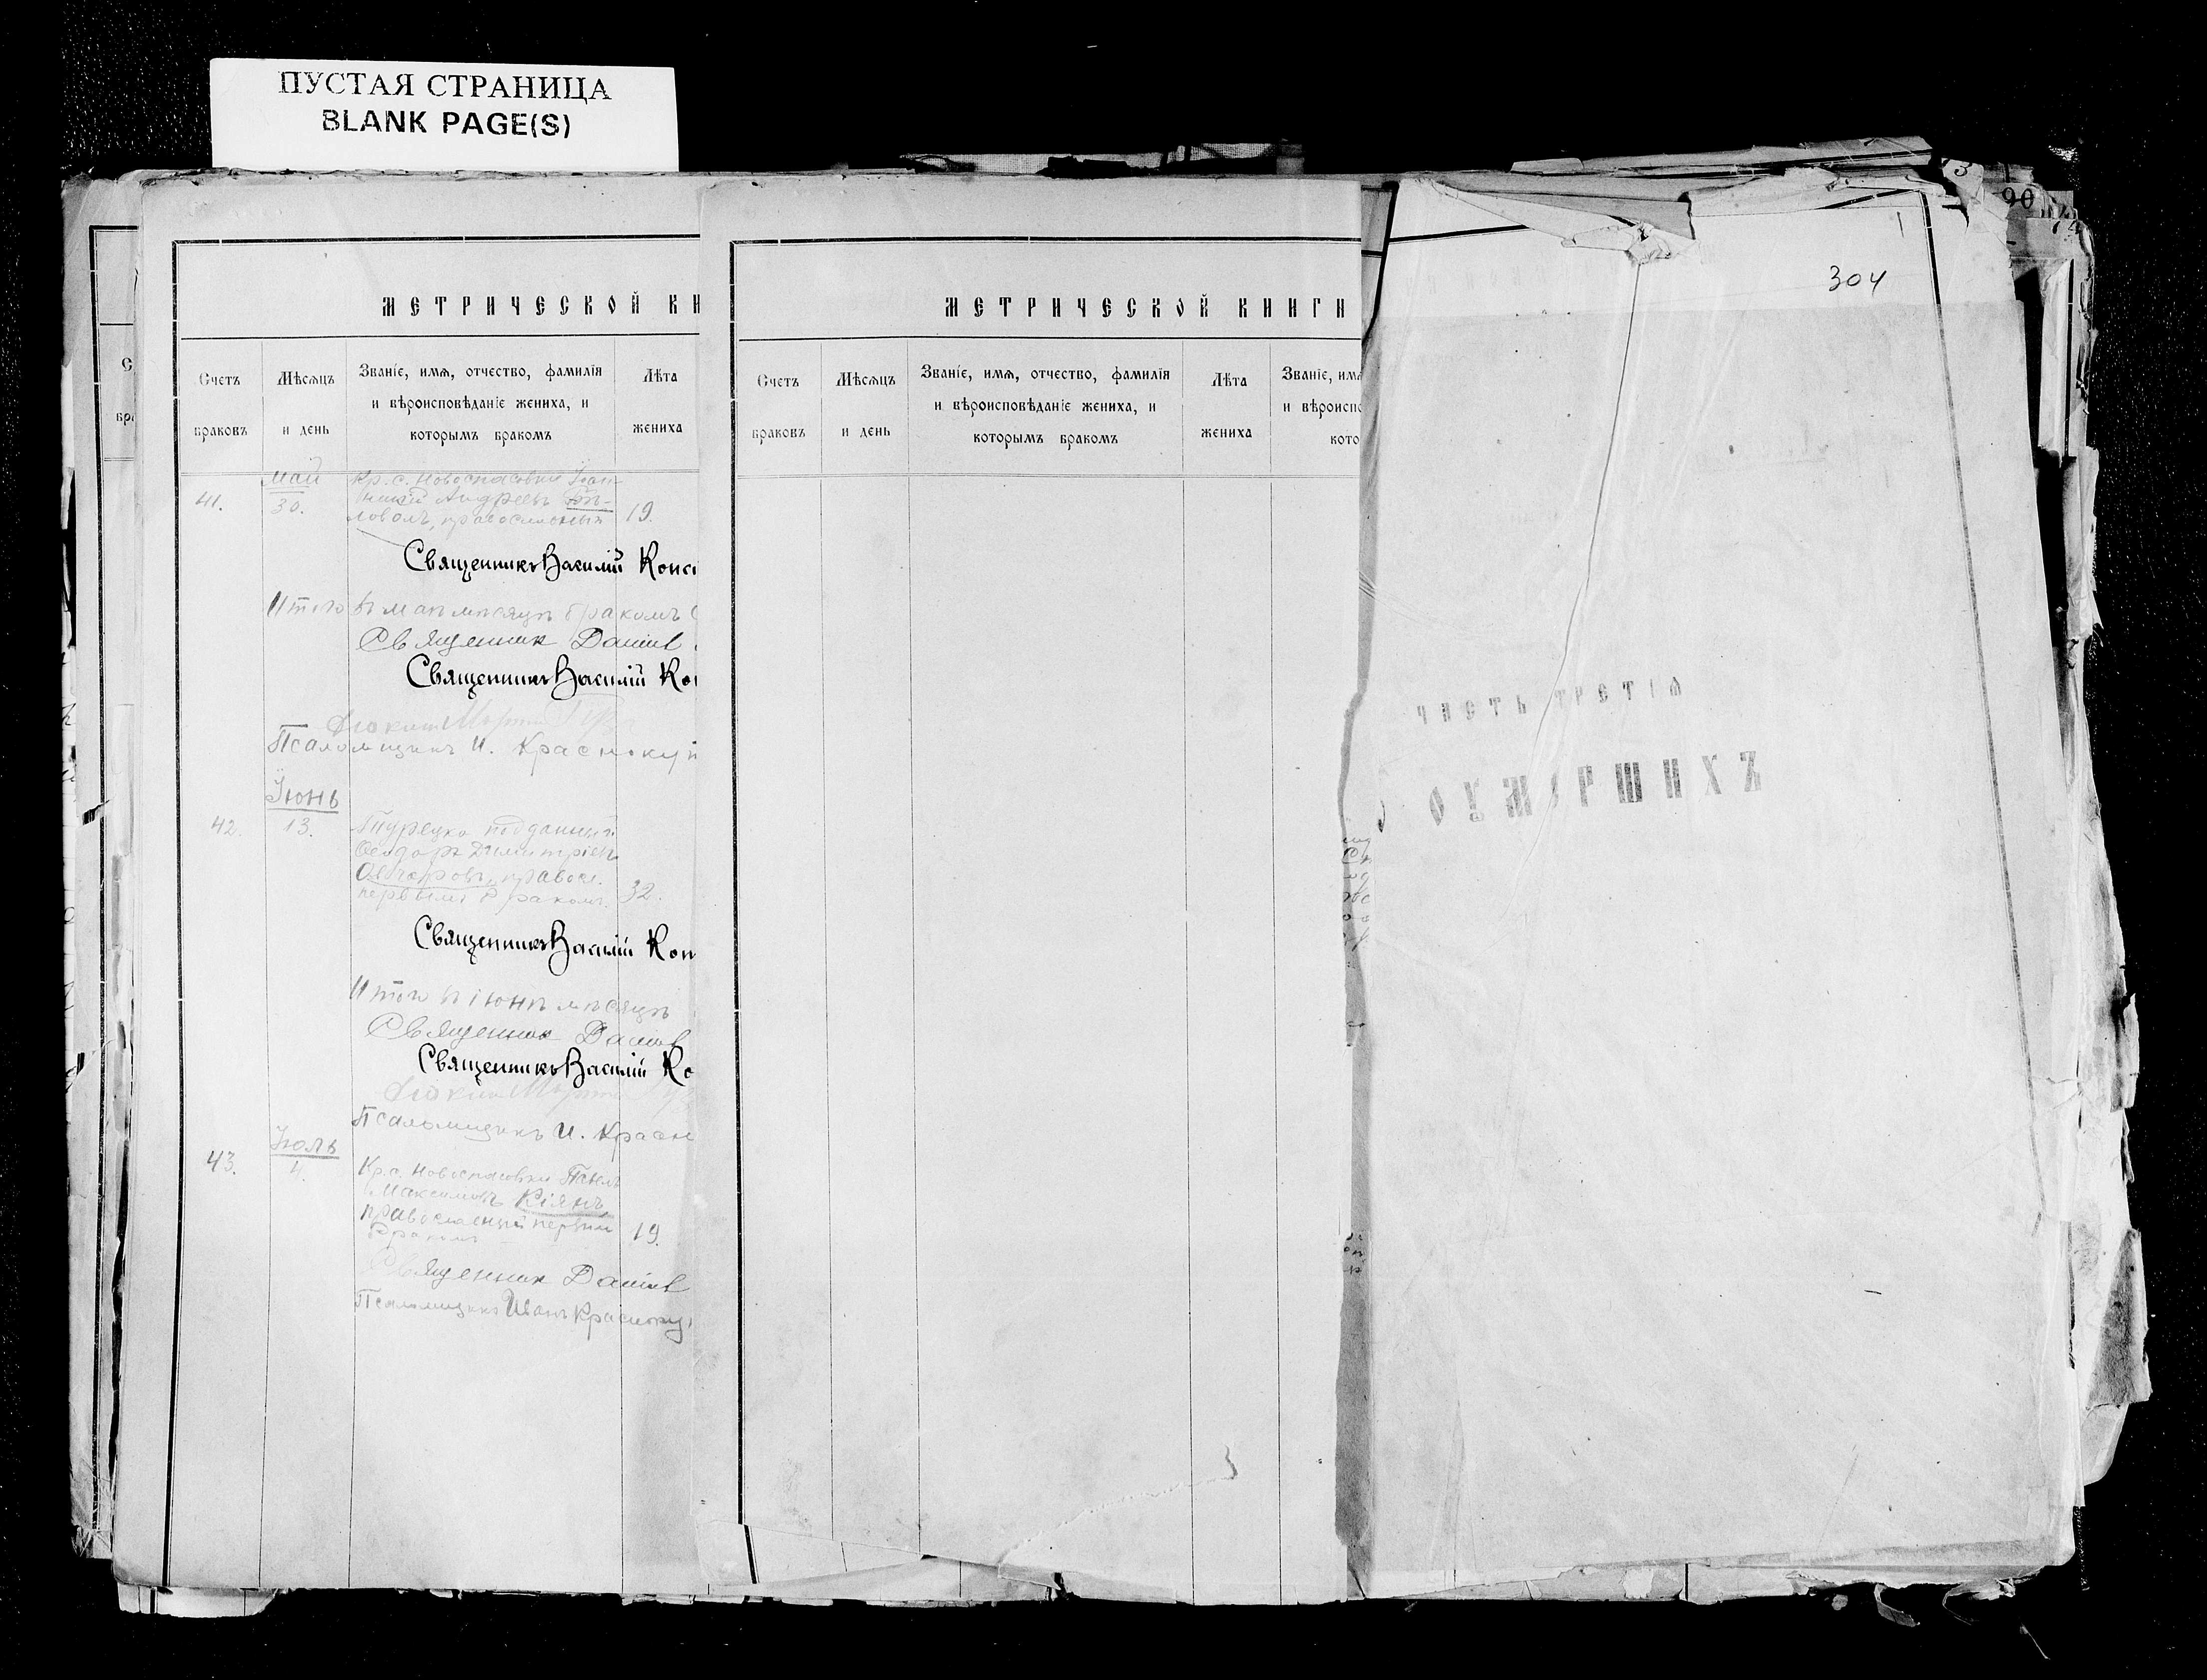 ПУСТАЯ СТРАНИЦА
BLANK PAGE(S)
МЕТРИЧЕСКОЙ КН
Счетъ
браковъ
Мѣсяцъ
и день
Званіе, имя, отчество, фамилія
и вѣроисповѣданіе жениха, и
которымъ бракомъ
Лѣта
жениха
41.
Май
30.
Кр. с. Новоспасовки
Андреевъ
православный
19.
Священникъ Василій Конс
Итого въ маѣ мѣсяцѣ бракомъ
Священник Даниил
Священникъ Василій Ко
Псаломщикъ И. Краснокут
Іюнь
42.
13.
Турецко подданный
Ѳеодоръ Димитріевъ
Овчаровъ, правосл.
первымъ бракомъ.
32.
Священникъ Василій Кон
Итого въ іюнѣ мѣсяцѣ
Священник Даниил
Священникъ Василій Ко
Псаломщикъ И. Красн
Іюль
43.
4.
Кр. с. Новоспасовки Павелъ
Максимовъ Кіянъ,
православный первым
бракомъ
19.
Священник Даниил
Псаломщикъ Иванъ Краснокут
МЕТРИЧЕСКОЙ КНИГИ
Счетъ
браковъ
Мѣсяцъ
и день
Званіе, имя, отчество, фамилія
и вѣроисповѣданіе жениха, и
которымъ бракомъ
Лѣта
жениха
Званіе, имя
и вѣроиспо
кото
304
ЧАСТЬ ТРЕТІЯ
О УМЕРШИХЪ
90